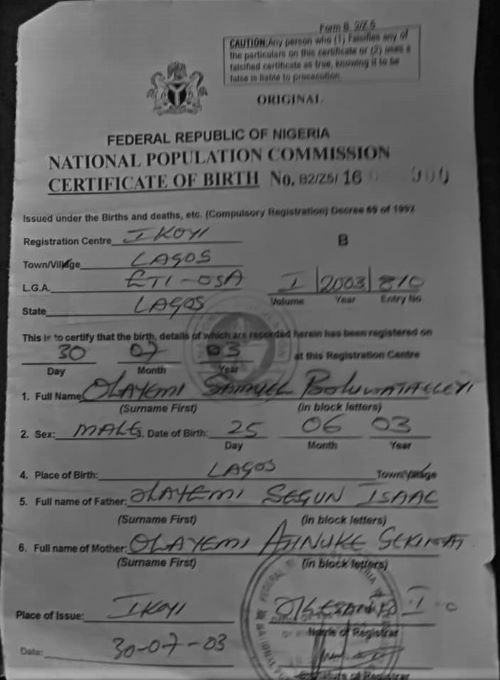 Form B. 2/Z.5
CAUTION: Any person who (1) Falsifies any of
the particulars on this certificate or (2) uses a
falsified certificate as true, knowing it to be
false is liable to prosecution.
ORIGINAL
FEDERAL REPUBLIC OF NIGERIA
NATIONAL POPULATION COMMISSION
CERTIFICATE OF BIRTH No. B2/Z5/ 16
Issued under the Births and deaths, etc. (Compulsory Registration) Decree 69 of 1992
Registration Centre IKOYI B
Town/Village LAGOS
L.G.A. ETI-OSA I 2003 810
Volume Year Entry No
State LAGOS
This is to certify that the birth, details of which are recorded herein has been registered on
30 07 03 at this Registration Centre
Day Month Year
1. Full Name OLAYEMI SAMUEL
(Surname First) (in block letters)
2. Sex: MALE 3. Date of Birth: 25 06 03
Day Month Year
4. Place of Birth: LAGOS Town/Village
5. Full name of Father: OLAYEMI SEGUN ISAAC
(Surname First) (in block letters)
6. Full name of Mother: OLAYEMI
(Surname First) (in block letters)
Place of Issue: IKOYI I
Name of Registrar
Date: 30-07-03
Signature of Registrar